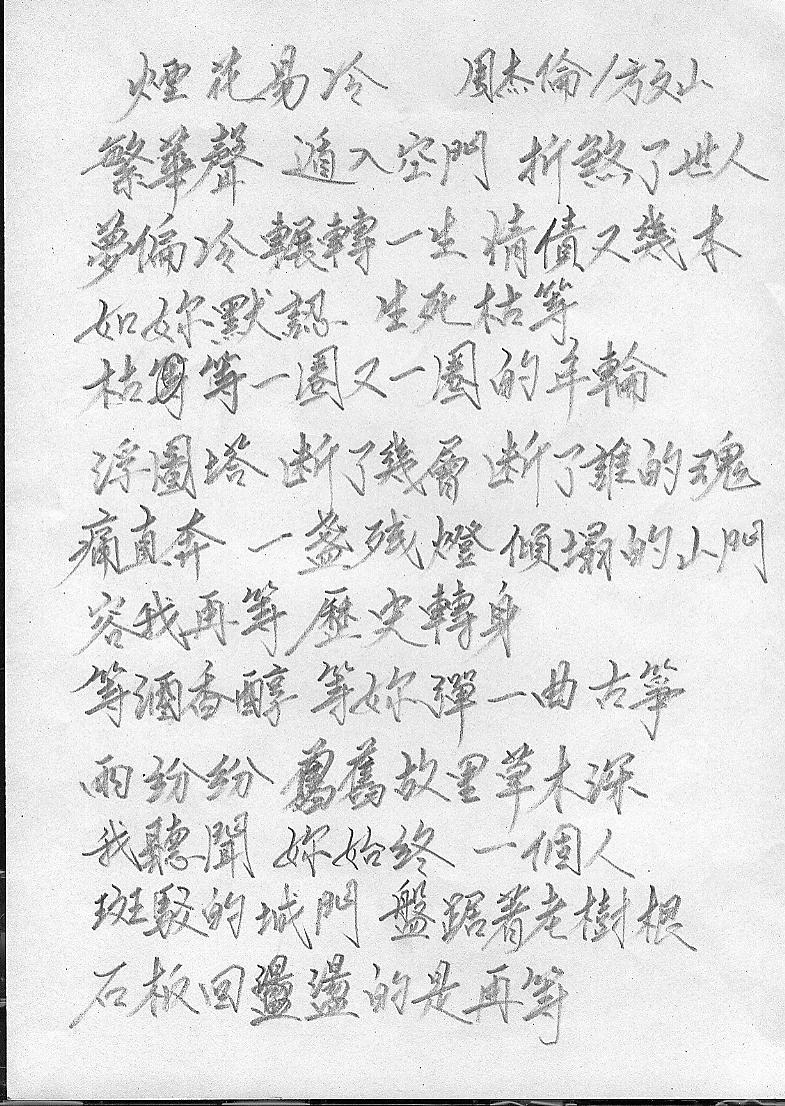 煙花易冷 周杰倫/方文山
繁華聲 遁入空門 折煞了世人
夢偏冷 輾轉一生 情債又幾本
如妳默認 生死枯等
枯等一圈又一圈的年輪
浮圖塔 斷了幾層 斷了誰的魂
痛直奔 一盞殘燈 傾塌的山門
容我再等 歷史轉身
等酒香醇 等妳彈一曲古箏
雨紛紛 舊故里草木深
我聽聞 妳始終 一個人
斑駁的城門 盤踞著老樹根
石板回盪的是再等